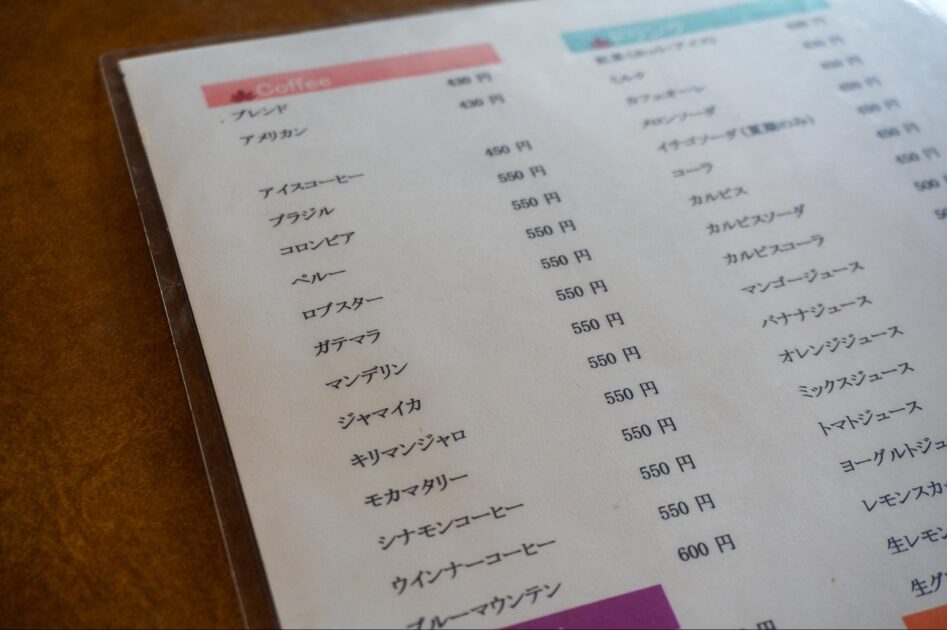 Coffee
ブレンド 430 円
アメリカン 430 円
アイスコーヒー 450 円
ブラジル 550 円
コロンビア 550 円
ペルー 550 円
ロブスター 550 円
ガテマラ 550 円
マンデリン 550 円
ジャマイカ 550 円
キリマンジャロ 550 円
モカマタリー 550 円
シナモンコーヒー 550 円
ウインナーコーヒー 550 円
ブルーマウンテン 600 円
ドリンク
紅茶(ホット・アイス)
ミルク
カフェオーレ
メロンソーダ
イチゴソーダ(夏期のみ)
コーラ 450 円
カルピス 450 円
カルピスソーダ 500
カルピスコーラ
マンゴージュース
バナナジュース
オレンジジュース
ミックスジュース
トマトジュース
ヨーグルトジュ
レモンスカ
生レモン
生グ